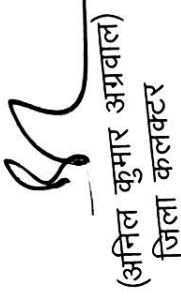 (अनिल कुमार अग्रवाल)
जिला कलक्टर